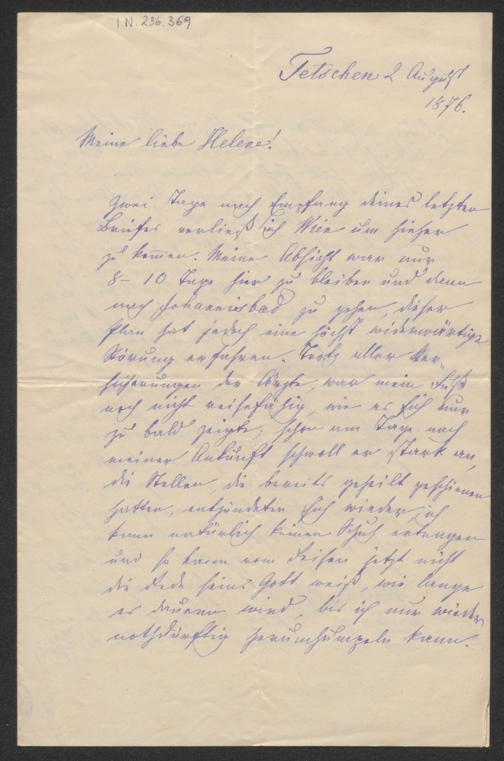 I.N. 236.369
Tetschen 2 August
1876.
Meine liebe Helene!
Zwei Tage nach Empfang deines letzten
Briefes verließ ich Wien um hieher
zu kommen. Meine Absicht war nur
8–10 Tage hier zu bleiben und dann
nach Johannisbad zu gehen, dieser
Plan hat jedoch eine höchst widerwärtige
Störung erfahren. Trotz aller Ver-
sicherungen der Ärzte, war mein Fuß
noch nicht reisefähig, wie es sich nur
zu bald zeigte, schon am Tage nach
meiner Ankunft schwoll er stark an,
die Stellen, die bereits geheilt geschienen
hatten, entzündeten sich wieder, ich
kann natürlich keinen Schuh ertragen
und so kann vom Reisen jetzt nicht
die Rede sein. Gott weiß, wie lange
es dauern wird, bis ich nur wieder
nothdürftig herumhumpeln kann.